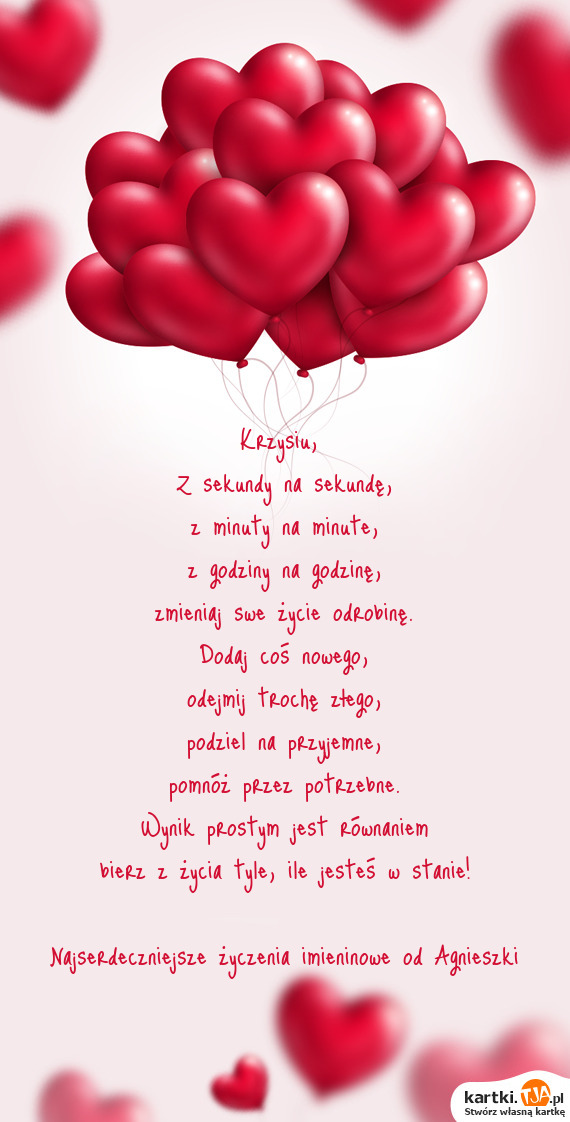 Krzysiu,
Z sekundy na sekundę,
z minuty na minute,
z godziny na godzinę,
zmieniaj swe życie odrobinę.
Dodaj coś nowego,
odejmij trochę złego,
podziel na przyjemne,
pomnóż przez potrzebne.
Wynik prostym jest równaniem
bierz z życia tyle, ile jesteś w stanie!
Najserdeczniejsze życzenia imieninowe od Agnieszki
kartki.TJA.pl
Stwórz własną kartkę